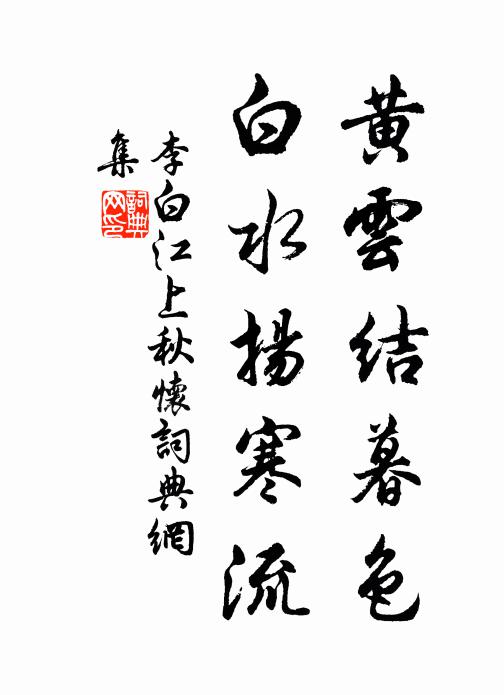 黃雲結暮色
白水揚寒流
李白江上秋懷詞典網
集
詞典
网印